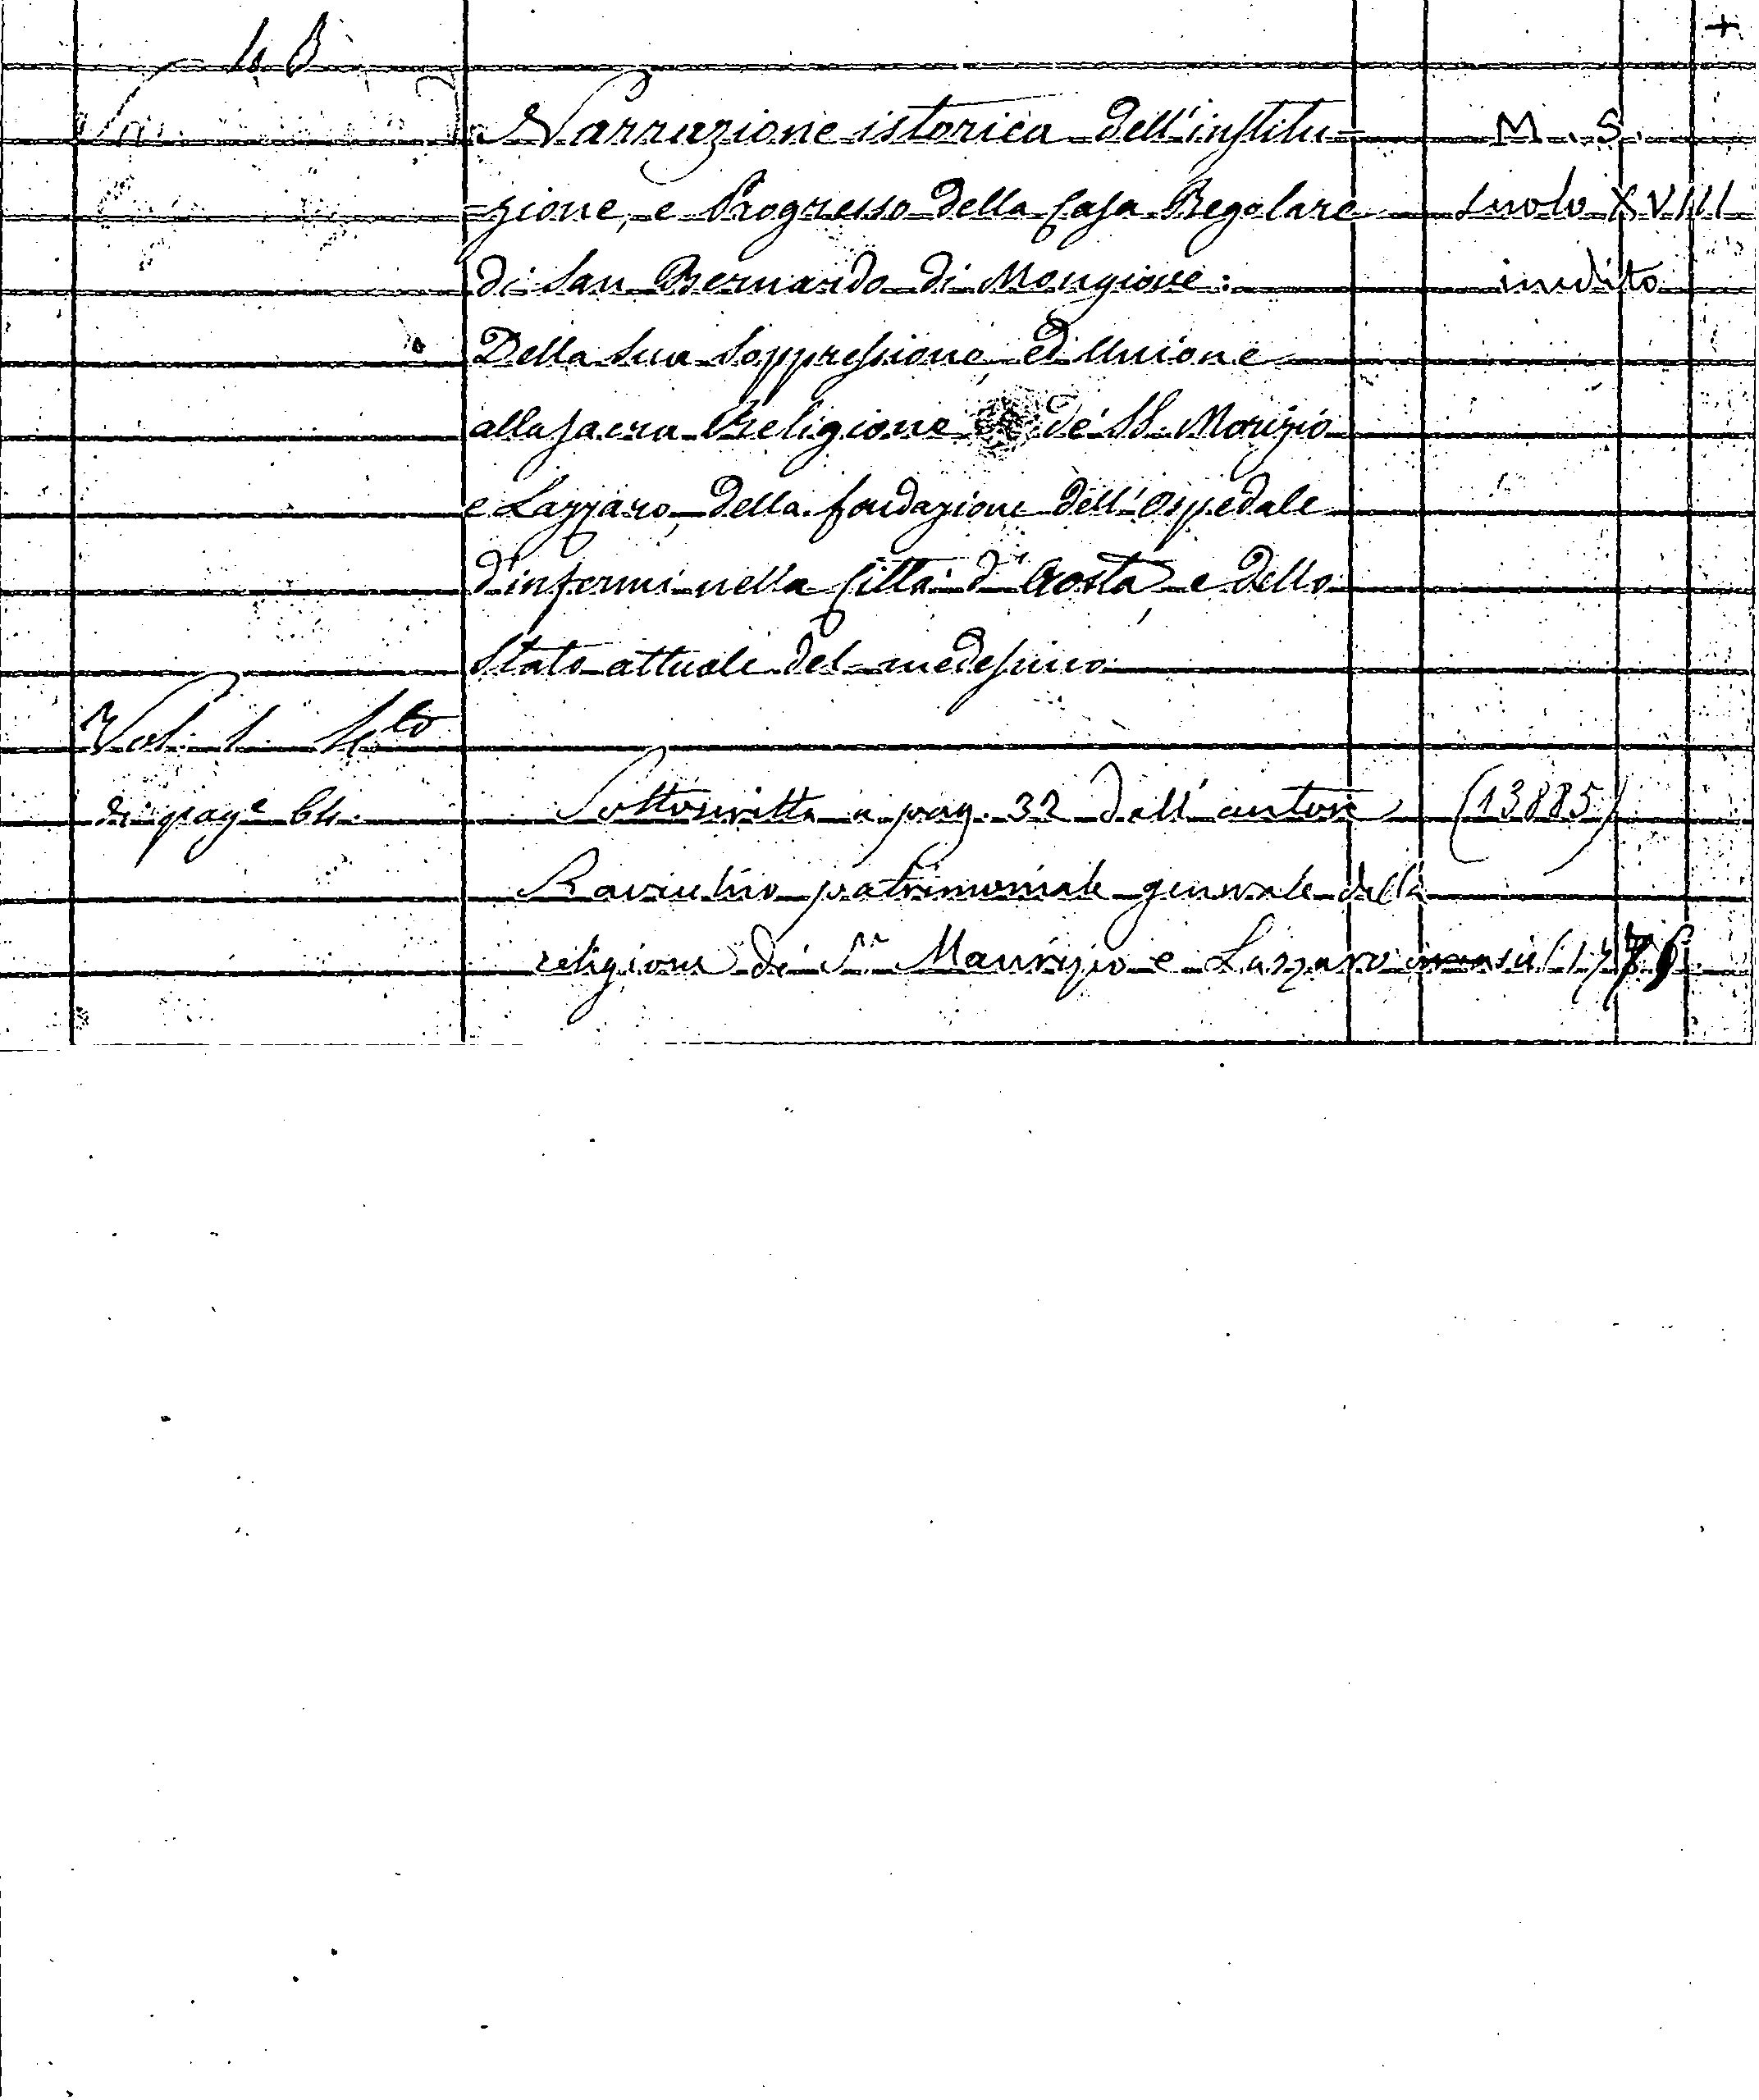 4 B +
Narrazione istorica dell'institu- M. S.
zione, e Progresso della Casa Regolare secolo XVIII
di San Bernardo di Mongiove: inedito
Della sua Soppressione, ed Unione
alla sacra Religione de' SS. Morizio
e Lazzaro, della fondazione dell'Ospedale
d'infermi nella Città d'Aosta, e dello
Stato attuale del medesimo
Vol. 1. 4to
di page 64. Sottoscritta a pag. 32 dall'autore (13885)
patrimoniale generale della
religione dei Sti Maurizio e Lazzaro